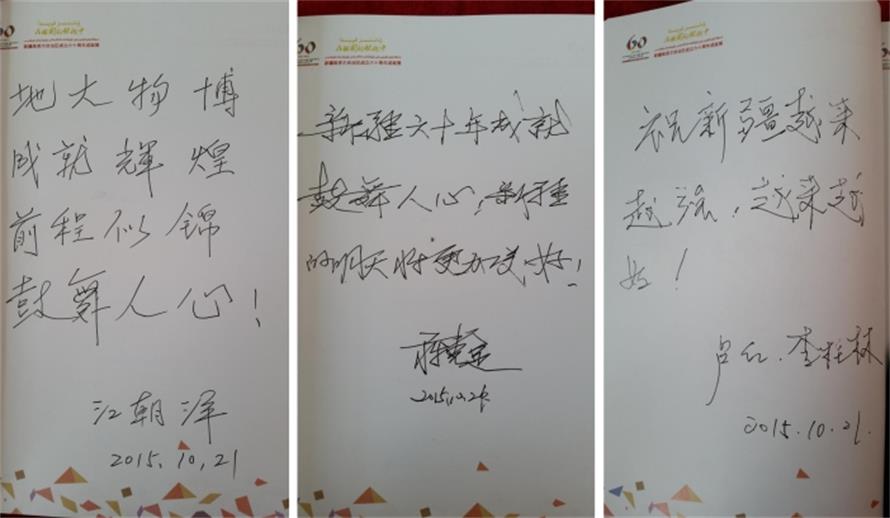 60
地大物博
成就輝煌
前程似锦
鼓舞人心!
江朝洋
2015.10.21
60
新疆六十年成就
鼓舞人心,新疆
的明天将更加美好!
2015.10.21
60
祝新疆越来
越强,越来越
好!
卢红.李桂林
2015.10.21.